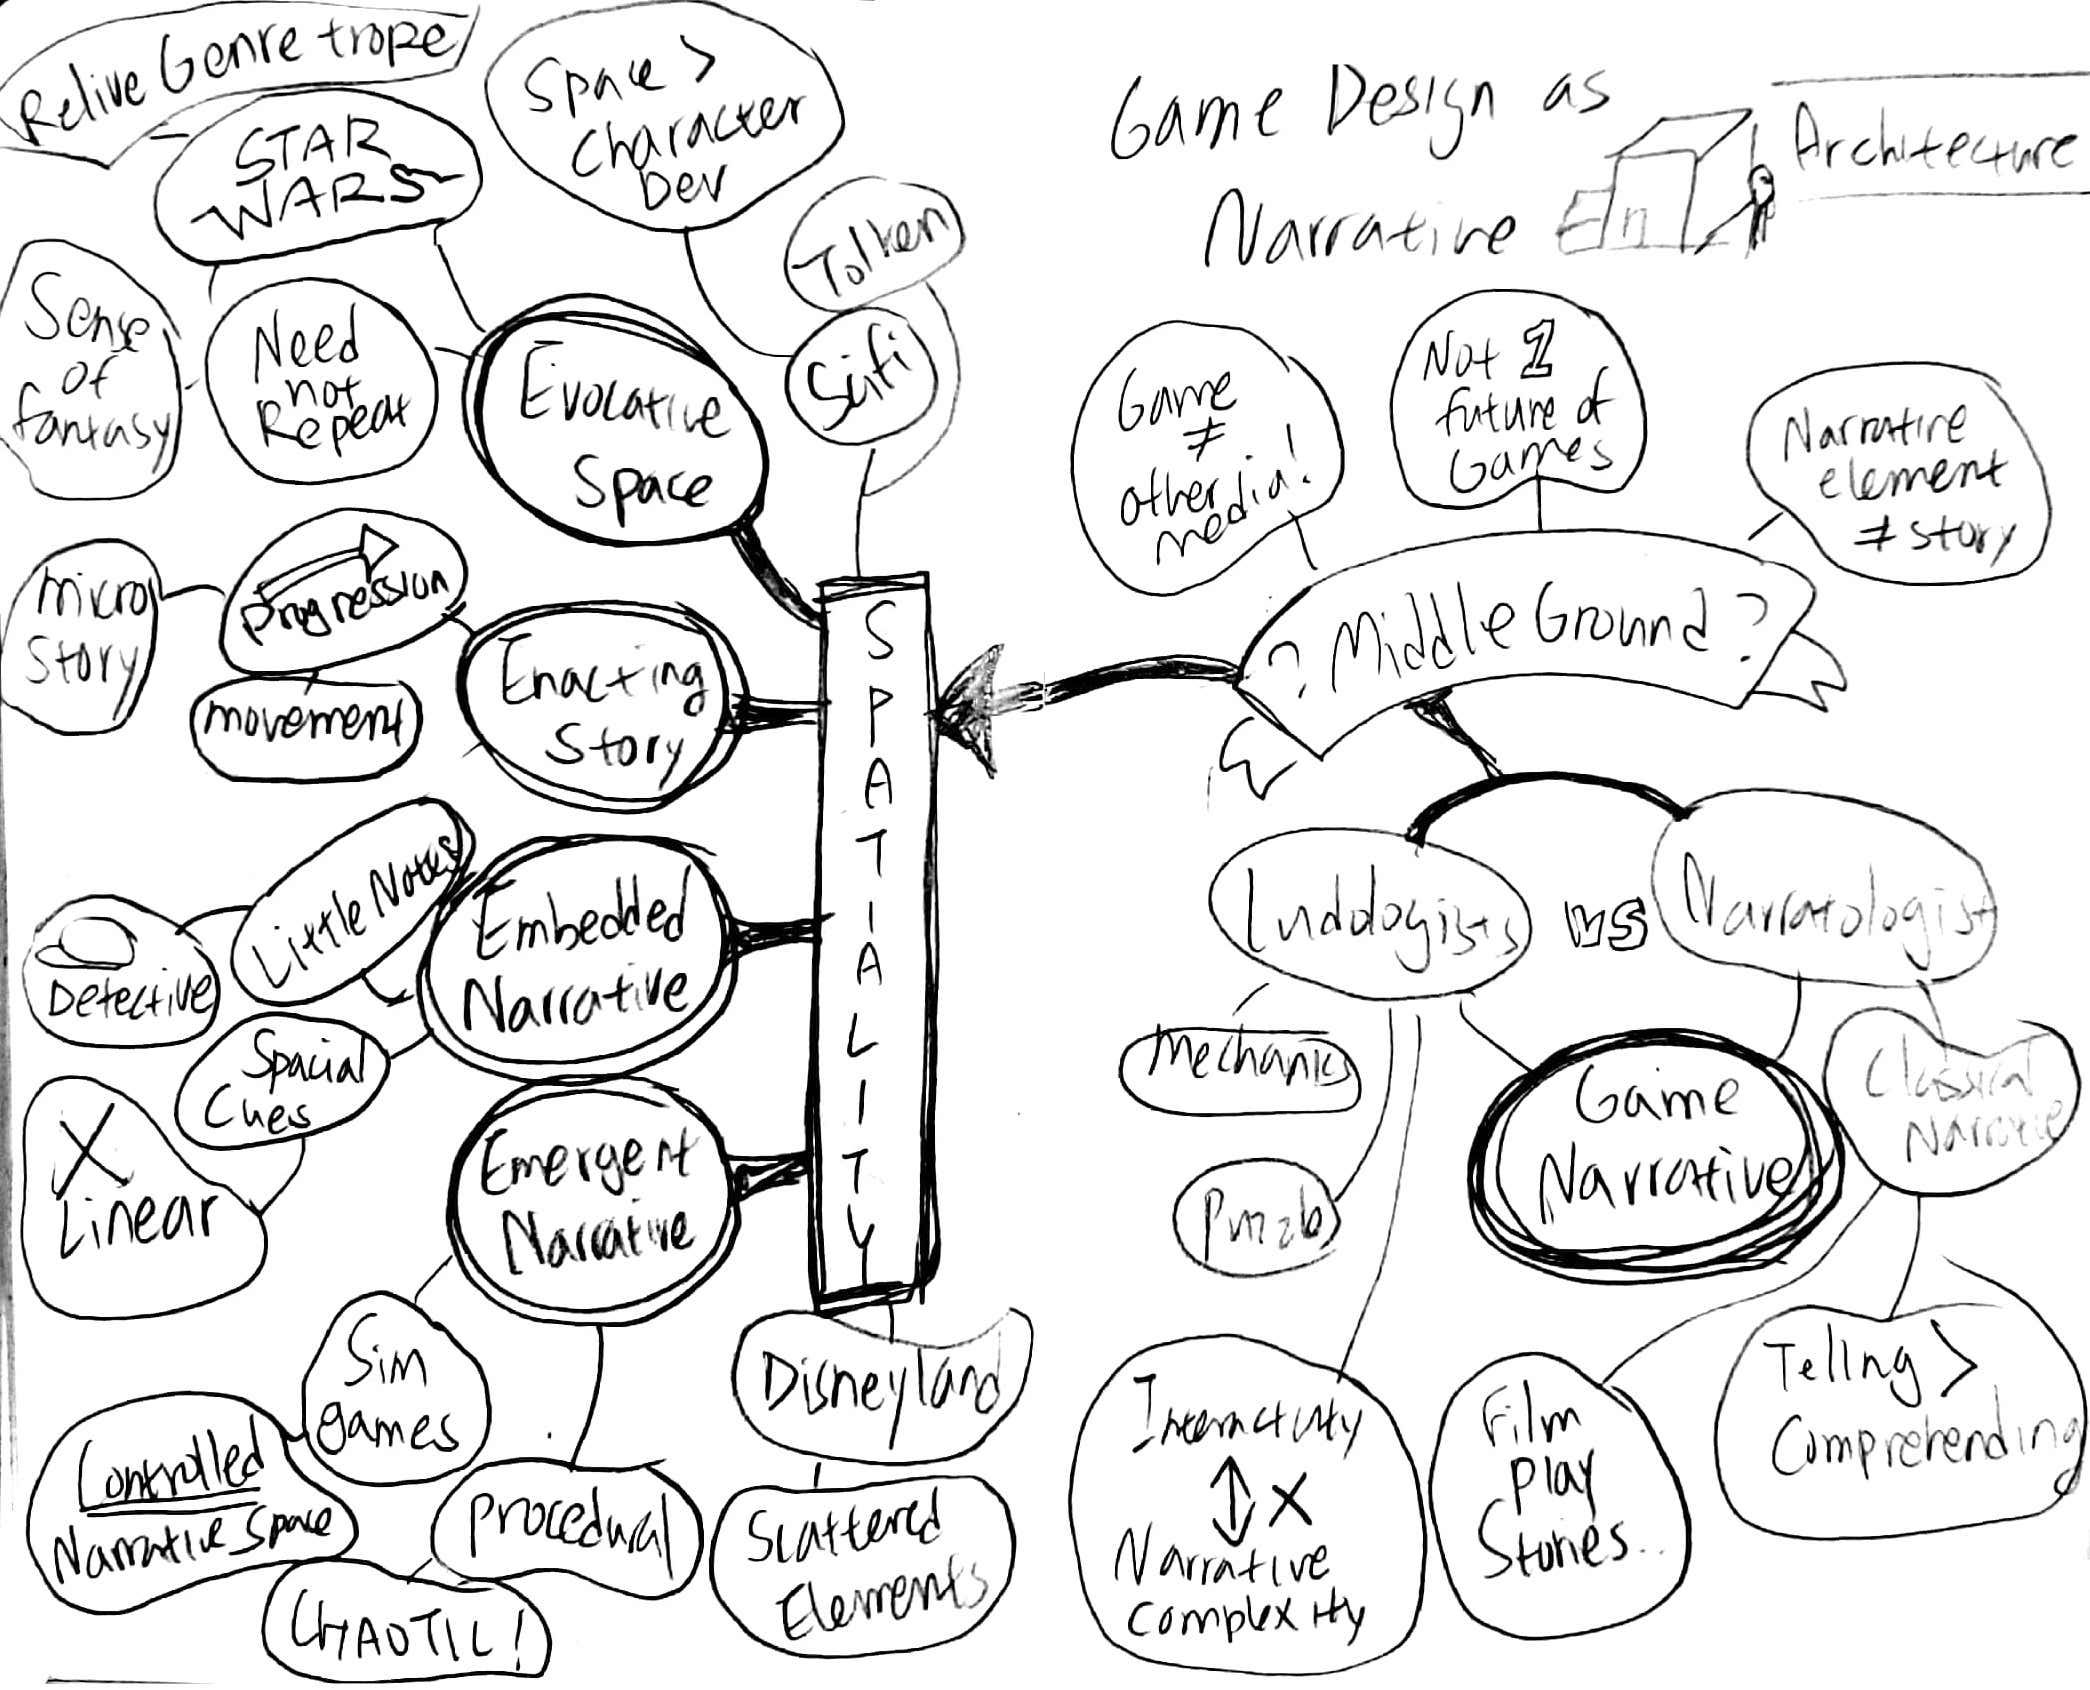 Game Design as
Narrative
Architecture
Relive Genre trope
STAR
WARS
Space >
Character
Dev
Tolken
Scifi
Sense
of
fantasy
Need
not
Repeat
Evocative
Space
Micro
Story
Progression
movement
Enacting
Story
Little Notes
Detective
Embedded
Narrative
Spacial
Cues
X
Linear
Emergent
Narrative
Sim
games
Controlled
Narrative Space
Procedural
CHAOTIC!
SPATIALITY
Disneyland
Scattered
Elements
Game
≠
other
media!
Not 1
future of
Games
Narrative
element
≠ story
? Middle Ground ?
Ludologists
VS
Narratologist
Mechanics
Puzzle
Game
Narrative
Classical
Narrative
Interactivity
↕ X
Narrative
Complexity
Film
Play
Stories..
Tellng >
Comprehending